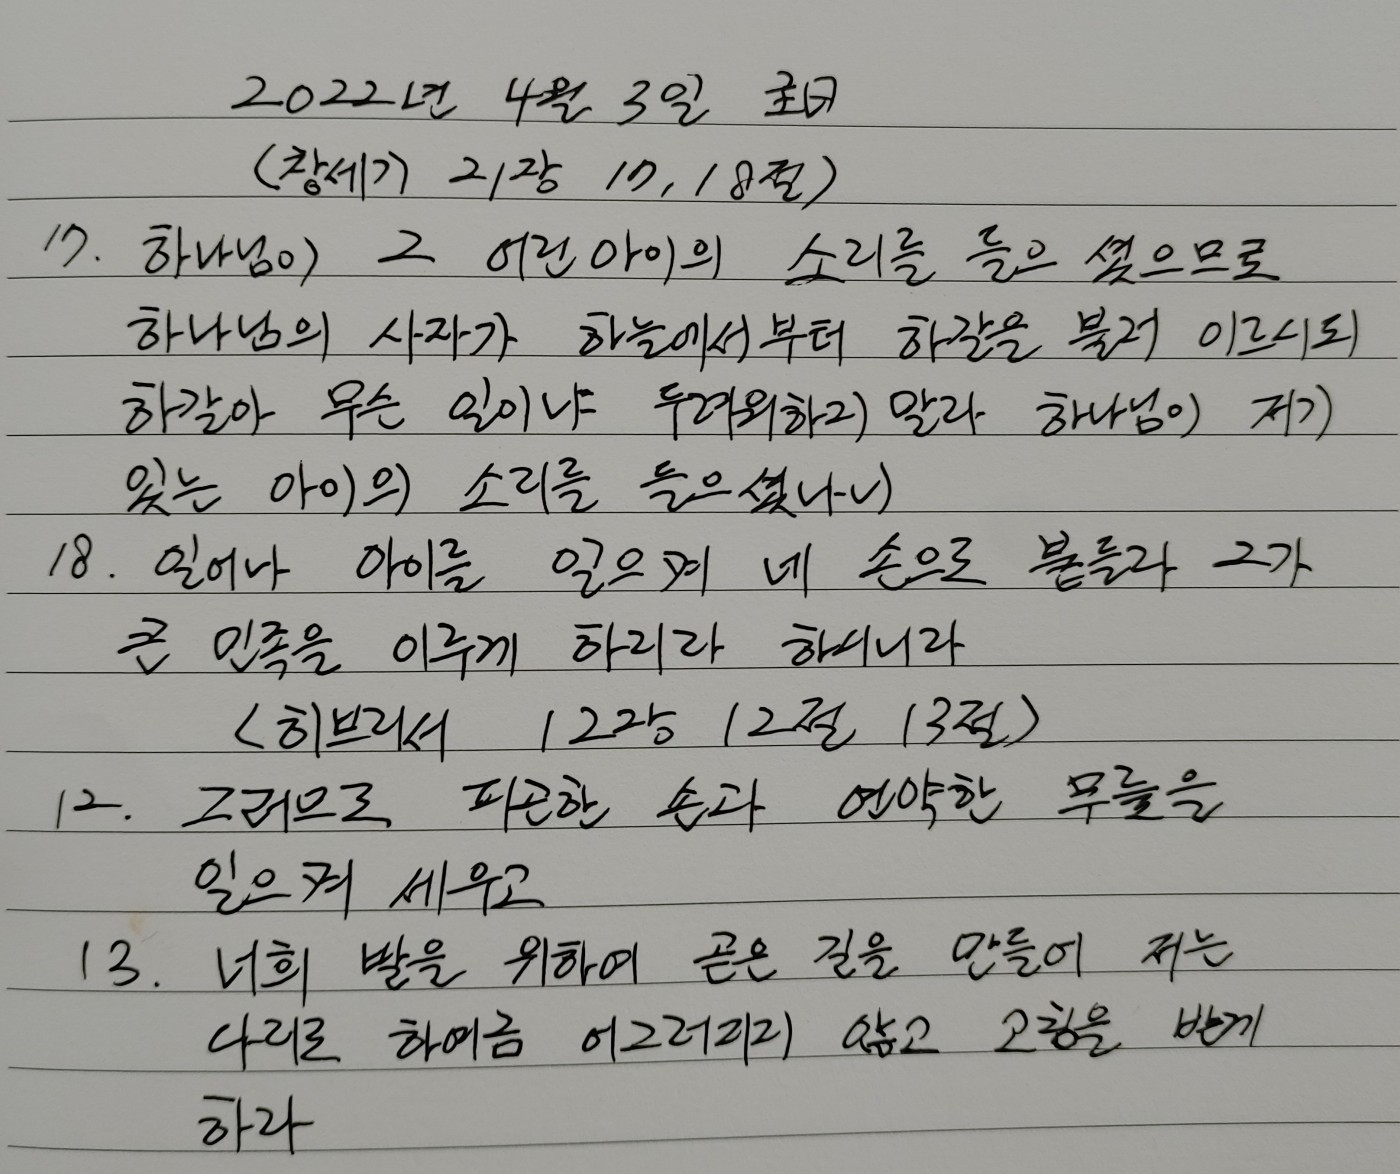 2022년 4월 3일 주日
(창세기 21장 17, 18절)
17. 하나님이 그 어린아이의 소리를 들으셨으므로
하나님의 사자가 하늘에서부터 하갈을 불러 이르시되
하갈아 무슨 일이냐 두려워하지 말라 하나님이 저기
있는 아이의 소리를 들으셨나니
18. 일어나 아이를 일으켜 네 손으로 붙들라 그가
큰 민족을 이루게 하리라 하시니라
(히브리서 12장 12절 13절)
12. 그러므로 피곤한 손과 연약한 무릎을
일으켜 세우고
13. 너희 발을 위하여 곧은 길을 만들어 저는
다리로 하여금 어그러지지 않고 고침을 받게
하라